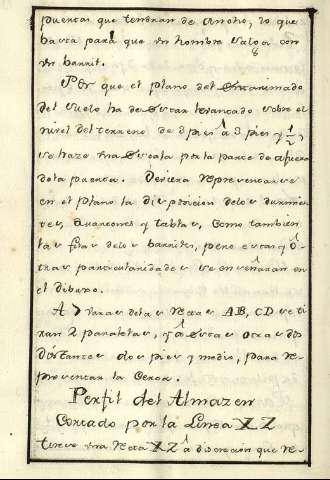 puertas que tendran de Ancho, lo que
basta para que un hombre salga con
un barril.
Por que el plano del encaxinado
del suelo ha de estar levantado sobre el
nivel del terreno de 2 pies à 3 pies y 1/2,
se haze una escala por la parte de afuera
de la puerta. Devera representarse
en el plano la disposicion de los durmien
tes, quarterones y tablas, como tambien
las filas de los barriles, pero estas y o
tras particularidades se enseñaran en
el dibuxo.
A varas de las rectas AB, CD se ti
ran 2 paralelas, y à estas otras dos
distantes dos pies y medio, para re
presentar la Cerca.
Perfil del Almazen
Cortado por la Linea XZ
tirese una recta XZ à discrecion que re-